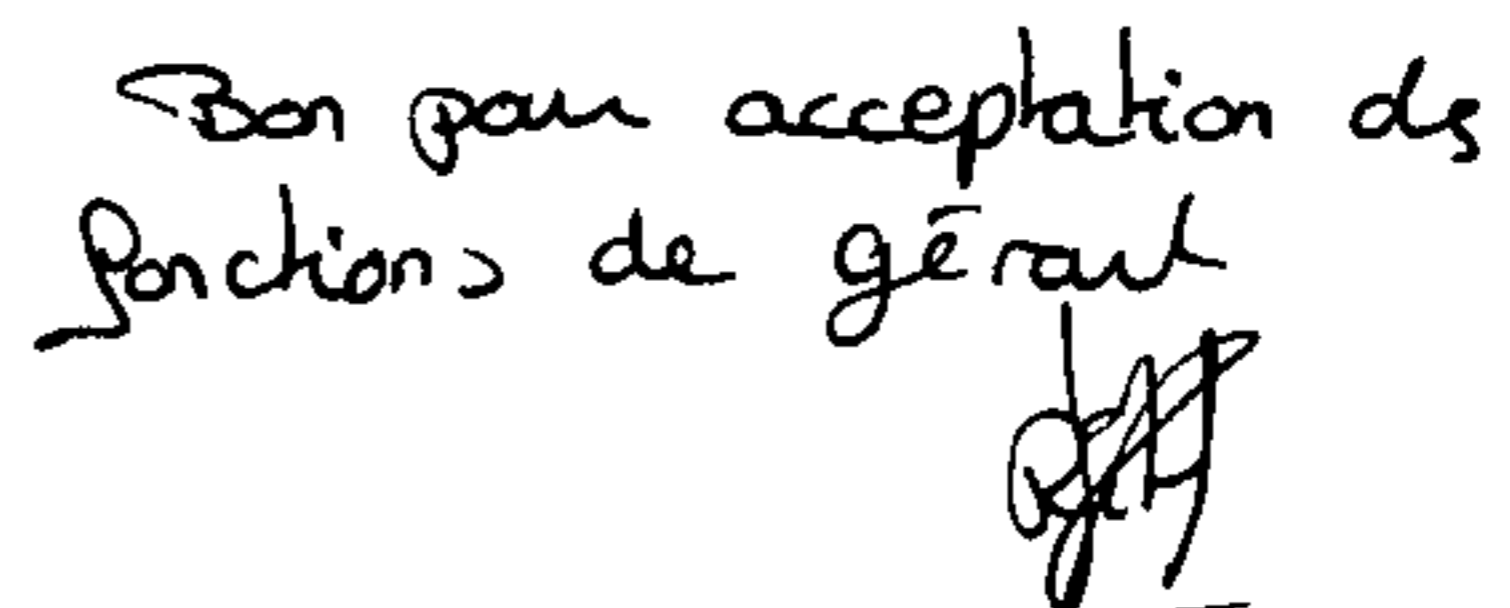 Bon pour acceptation des
fonctions de gérant